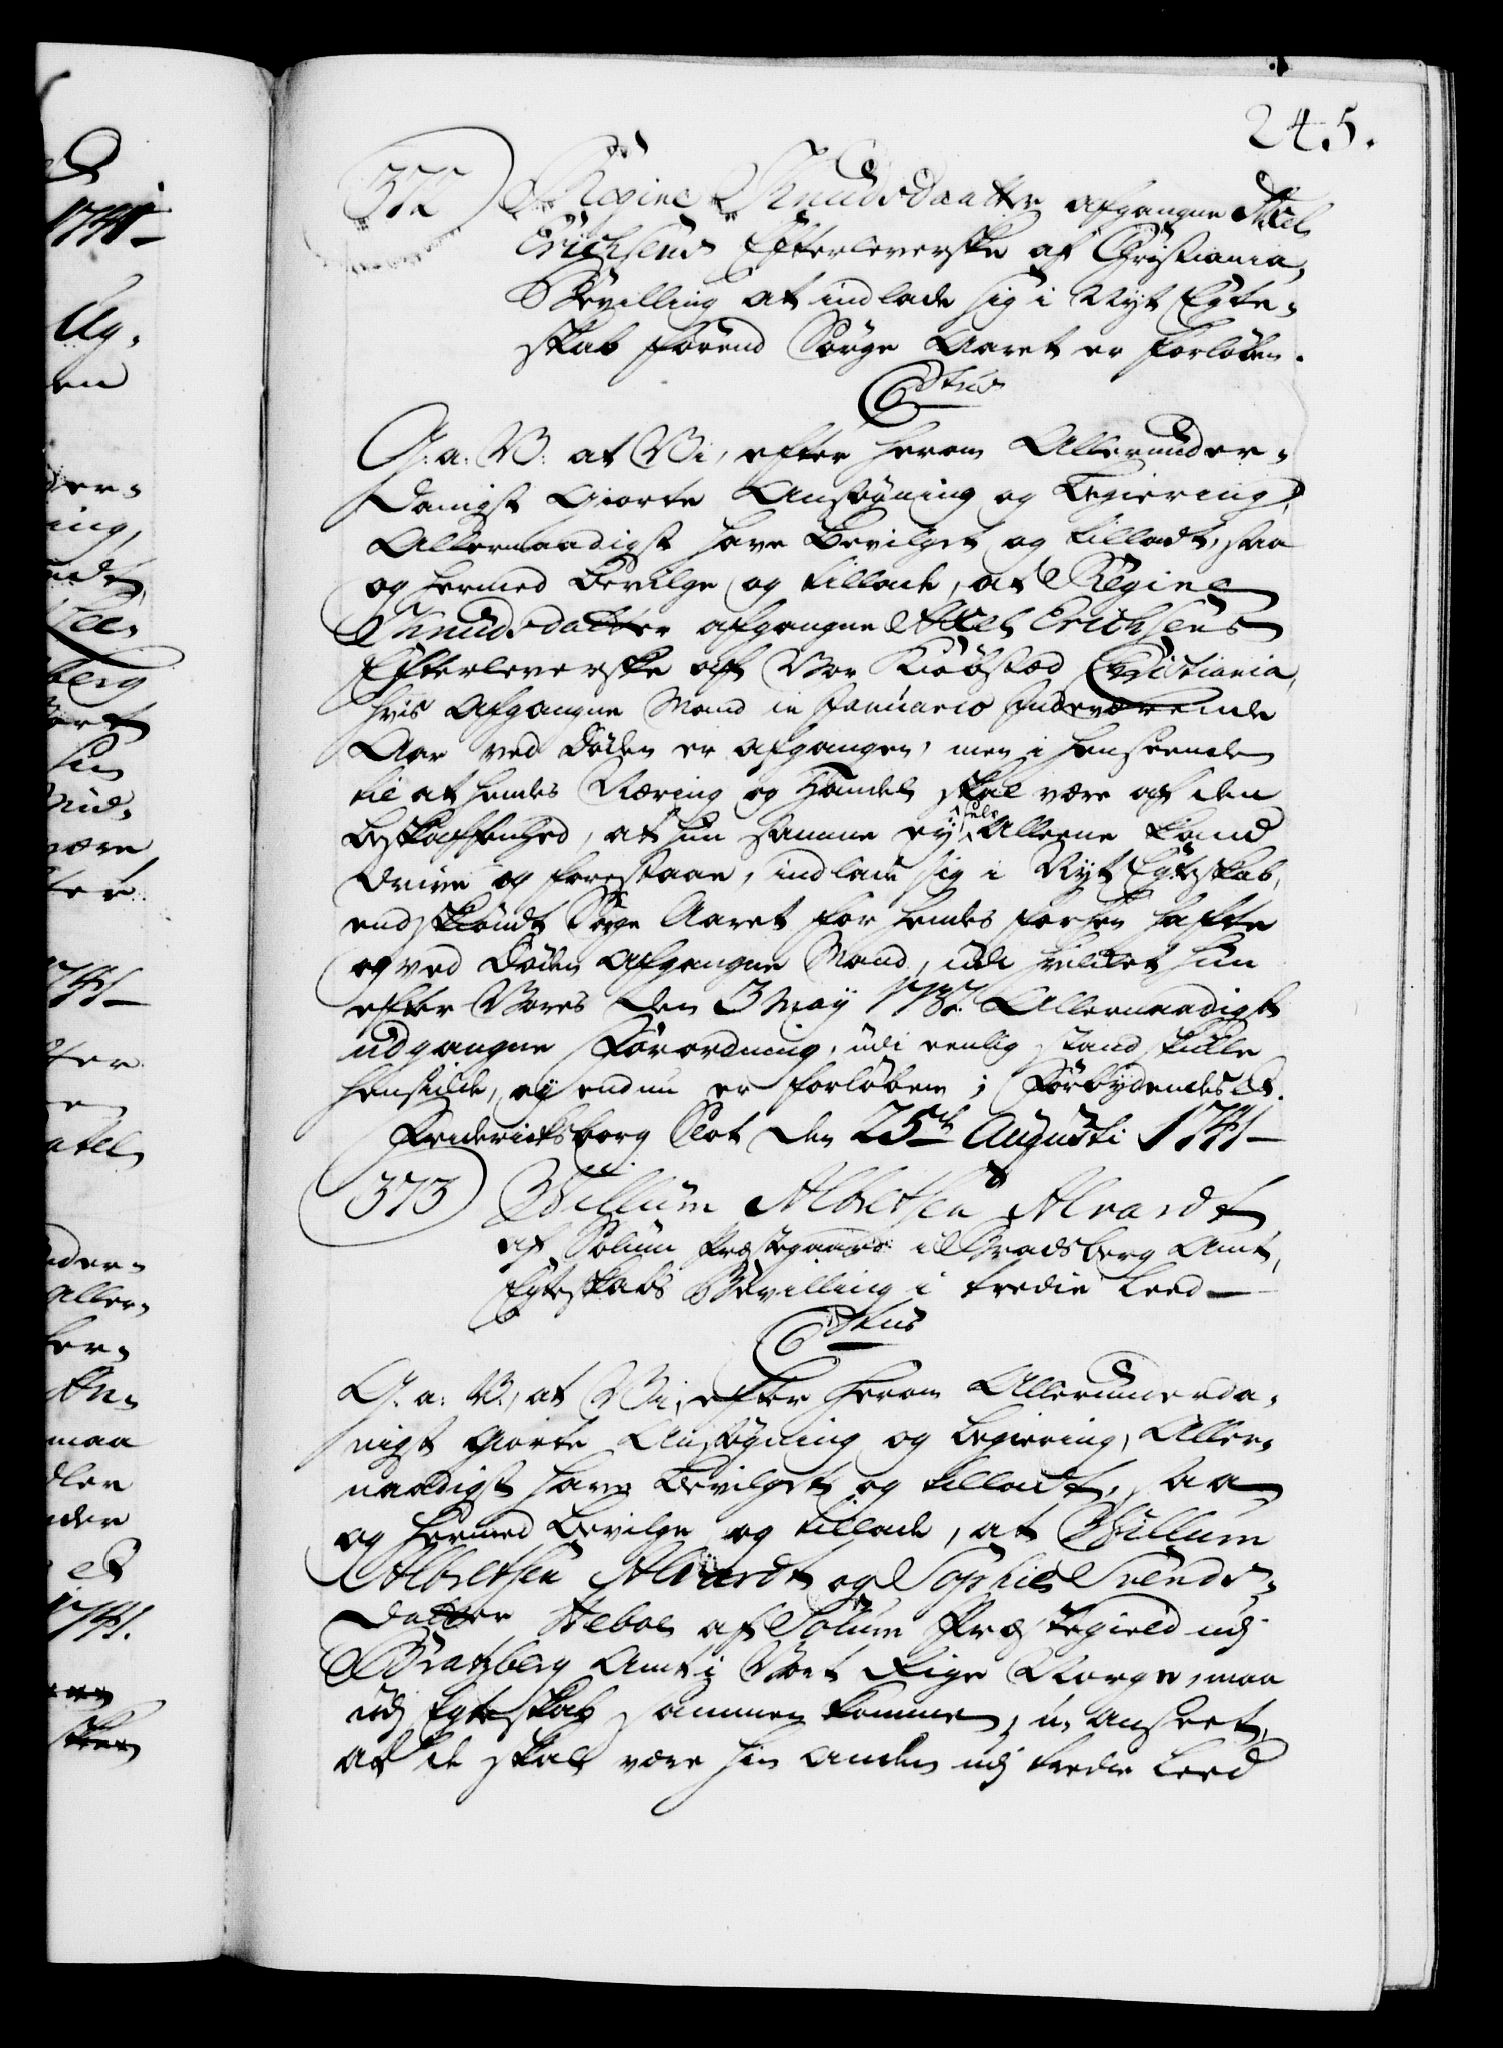 245.
372) Regine Knudsdaatter afgangne Axel
Erichsens Efterleverske af Christiania,
Bevilling at indlade sig i Nyt Egte-
skab förend Sørge Aaret er forløben.
C Stus
G: a: V: at Vi, efter herom Allerunder-
danigst giorte Ansøgning og Begiering,
Allernaadigst have bevilget og tilladt, saa
og hermed bevilge og tillade, at Regine
Knudsdatter afgangne Axel Erichsens
Efterleverske aff Vor Kiøbsted Christiania,
hvis Afgangne Mand in Januario Indeværende
Aar ved Døden er afgangen, men i henseende
til at hendes Næring og Handel skal være af den
beskaffenhed, at hun samme ey selv Alleene kand
drive og forestaae, indlade sig i Nyt Egteskab,
endskiøndt Sørge Aaret for hendes forhen hafte
og ved Døden Afgangne Mand, udi hvilket hun
efter Vores den 3 May 1737. Allernaadigst
udgangne Forordning, udi eenlig stand skulle
hensidde, ey endnu er forløben; Forbydendes &.
Friderichsborg Slot den 25de Augusti 1741
373) Willum Albretsen Alvardt
af Solum Præstegaard i Bradsberg Amt,
Egteskabs Bevilling i tredie Leed
C Stus
G: a: V:, at Vi, efter herom Allerunderda-
nigst giorte Ansøgning og begiering, Aller-
naadigst have bevilget og tilladt, saa
og hermed bevilge og tillade, at Willum
Albretsen Alvardt og Sophie Svends-
datter Aeboe af Solum Præstegield udj
Bratzberg Amt i Vort Rige Norge, maa
udj Egteskab sammen komme, u-anseet,
at de skal være hin anden udj tredie Leed